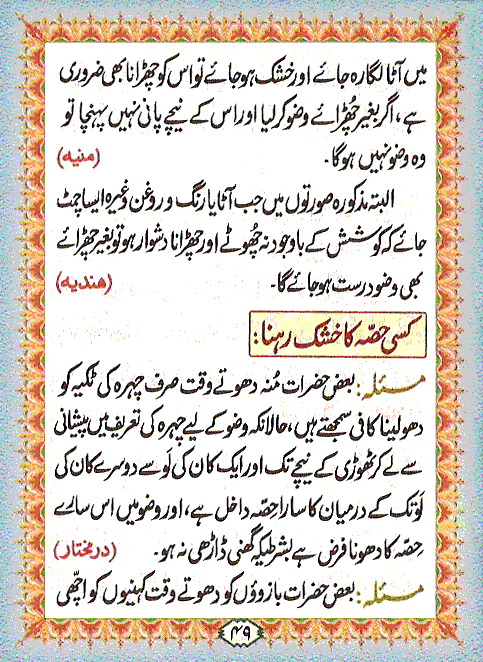 میں آٹا لگا رہ جائے اور خشک ہو جائے تو اس کو چھڑانا بھی ضروری
ہے، اگر بغیر چُھڑائے وضو کر لیا اور اس کے نیچے پانی نہیں پہنچا تو
وہ وضو نہیں ہوگا۔ (منیہ)
البتہ مذکورہ صورتوں میں جب آٹا یا رنگ و روغن وغیرہ ایسا چمٹ
جائے کہ کوشش کے باوجود نہ چُھوٹے اور چھڑانا دشوار ہو تو بغیر چھڑائے
بھی وضو درست ہو جائے گا۔ (ھندیہ)
کسی حصّہ کا خشک رہنا:
مسئلہ: بعض حضرات مُنہ دھوتے وقت صرف چہرہ کی ٹکیہ کو
دھو لینا کافی سمجھتے ہیں، حالانکہ وضو کے لیے چہرہ کی تعریف میں پیشانی
سے لے کر ٹھوڑی کے نیچے تک اور ایک کان کی لَو سے دوسرے کان کی
لَو تک کے درمیان کا سارا حِصّہ داخل ہے، اور وضو میں اس سارے
حِصّہ کا دھونا فرض ہے بشرطیکہ گھنی ڈاڑھی نہ ہو۔ (درمختار)
مسئلہ: بعض حضرات بازوؤں کو دھوتے وقت کہنیوں کو اچھی
۴۹